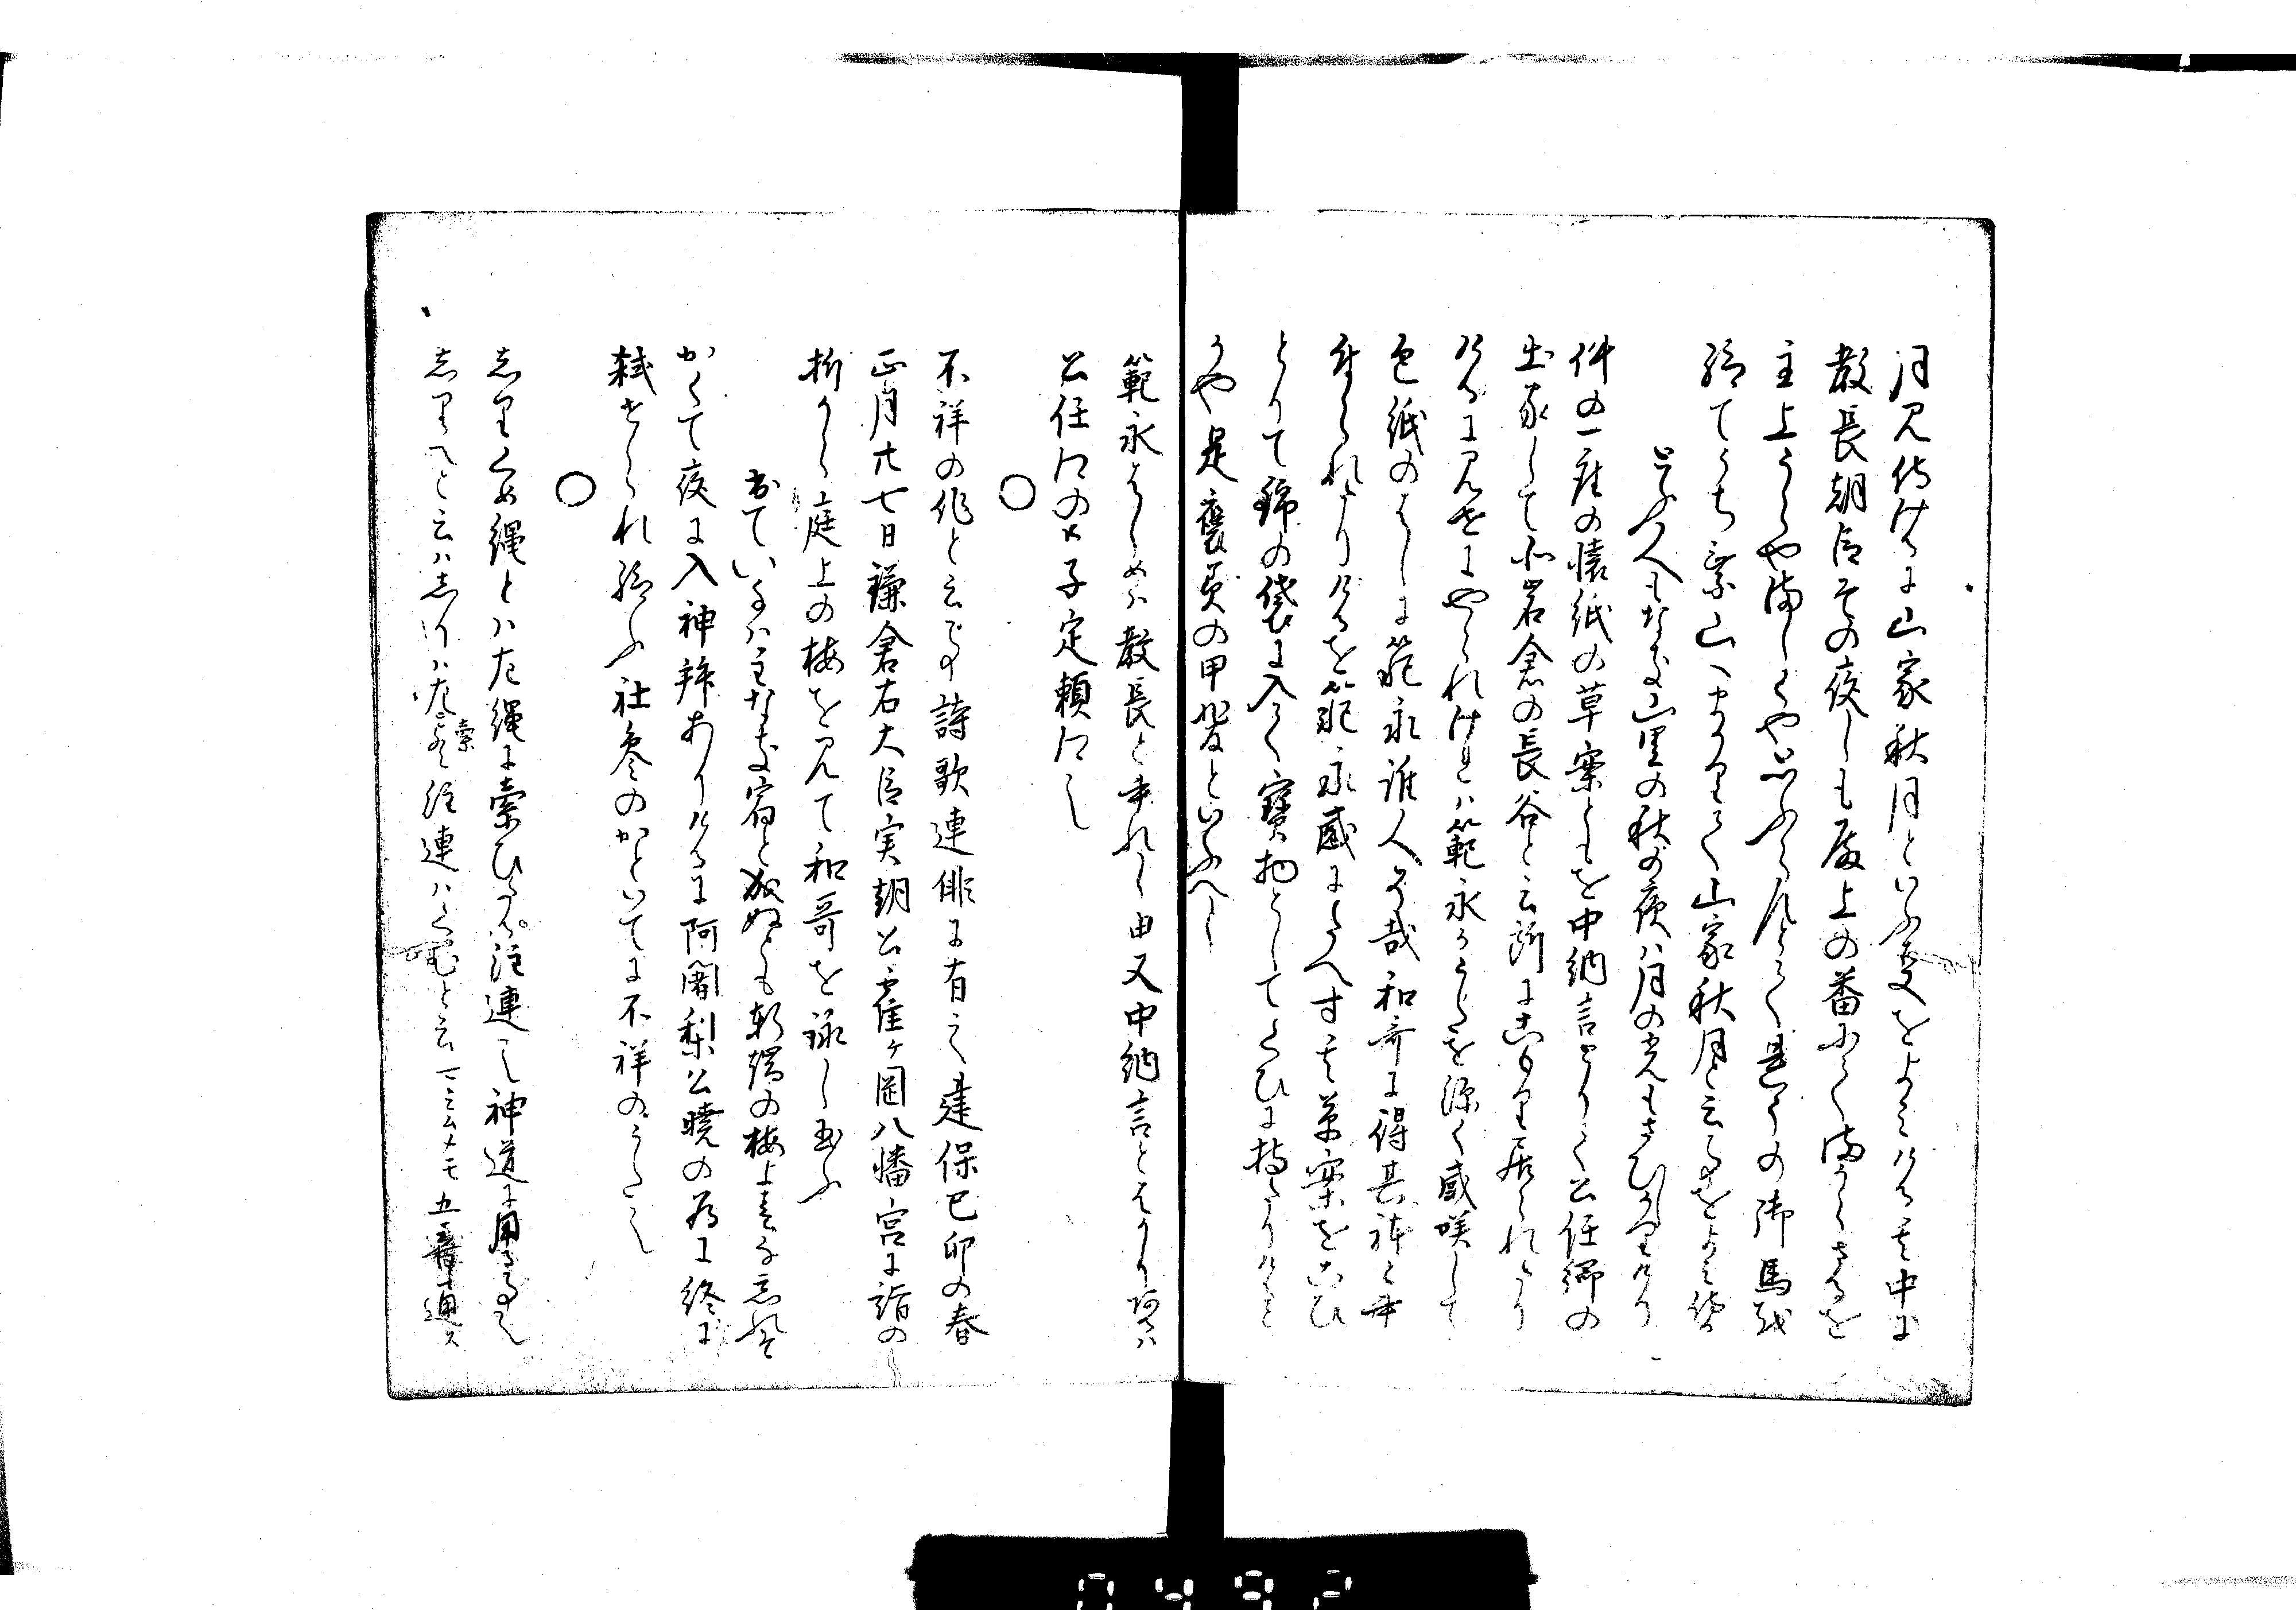 月見侍けるに山家秋月といふ事をよみける其中に
教長朝臣その夜しも殿上の番にてまからさるを
主上うらやましくや思ふらんとて是うの御馬を
給てうち乗山へまかりて山家秋月と云事をよみ侍る
とふ人もなき山里の秋の夜は月の光もさひしかりけり
件の一座の懐紙の草案ともを中納言とりて公任卿の
出家して北岩倉の長谷と云所にこもり居られたり
けるに見せにやられけれハ範永かうたを深く感咲して
色紙のはしに範永誰人そ哉和哥に得其躰と書
付られたりけるを範永感にたへす其草案をこひ
とりて錦の袋に入て寶物としてたひに持たりけると
かや是褒美の甲斐といふへし
範永はしめハ教長と申れし由又中納言とはかりあるハ
公任卿の子定頼卿也
○
不祥の作と云事詩歌連俳に有之建保己卯の春
正月廿七日鎌倉右大臣実朝公雀ヶ岡八幡宮に詣の
折から庭上の梅を見て和哥を詠し玉ふ
出ていなは主なき宿と成ぬとも軒端の梅よ春を忘るな
かくて夜に入神拝ありけるに阿闍梨公暁の為に終に
弑せられ給ふ社参のかといてに不祥のうた也
○
しりくめ縄とハ左縄に索ひたる注連也神道に用る事也
しりへと云ハしりハ左索注連ハくむと云